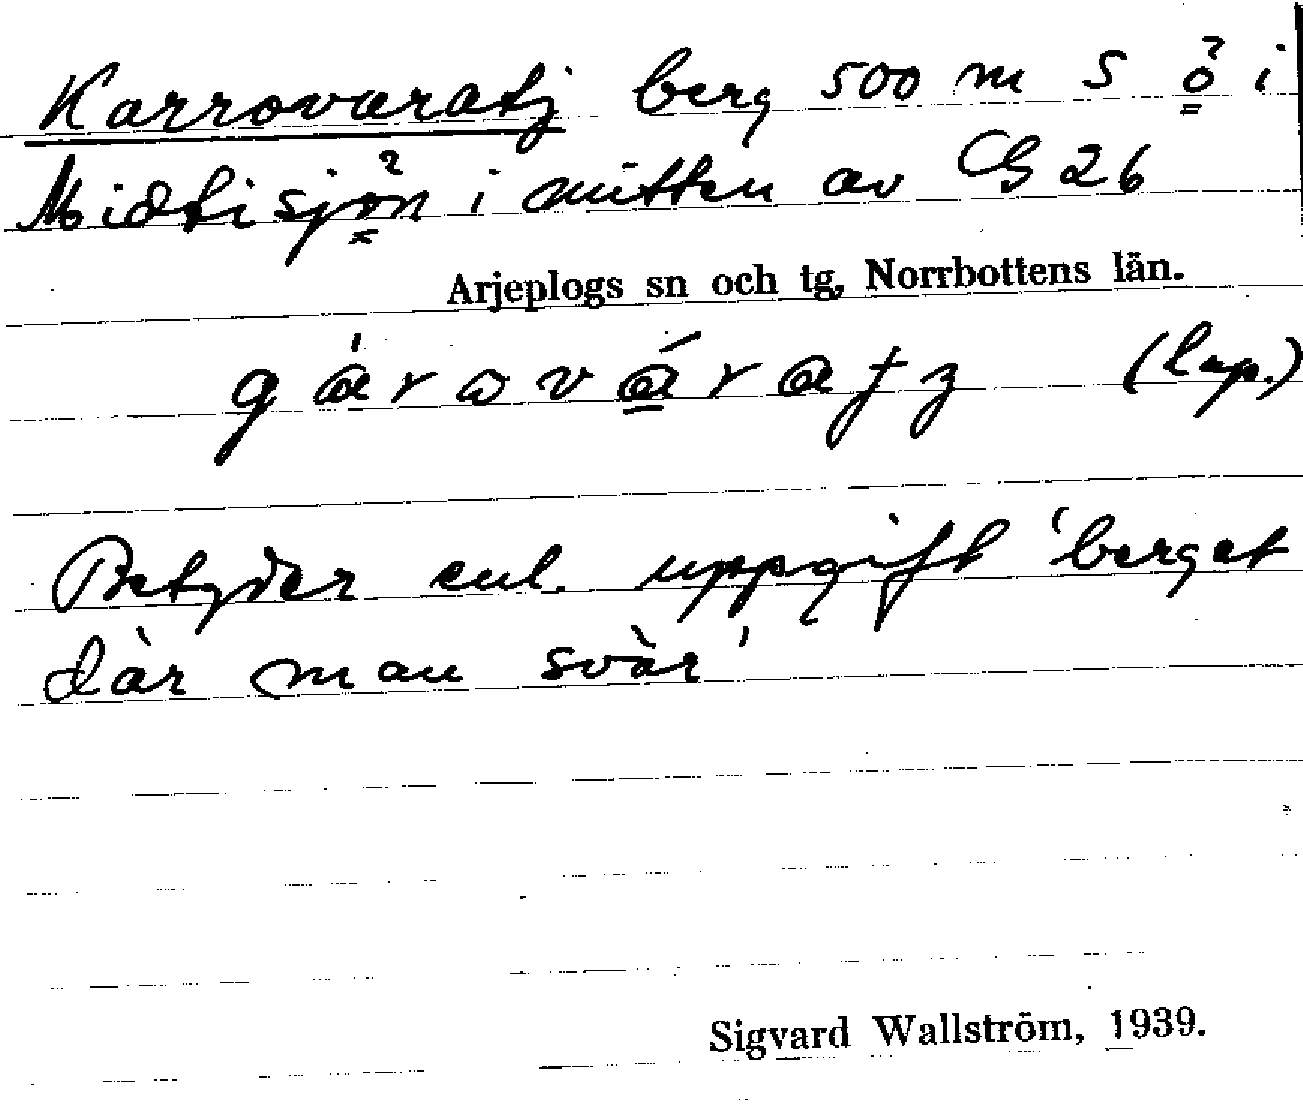 Karrovaratj berg 500 m S ö i
Midtisjön i mitten av G 26
Arjeplogs sn och tg, Norrbottens län.
gárováratj (lap.)
Betyder enl. uppgift 'berget
där man svär'
Sigvard Wallström, 1939.